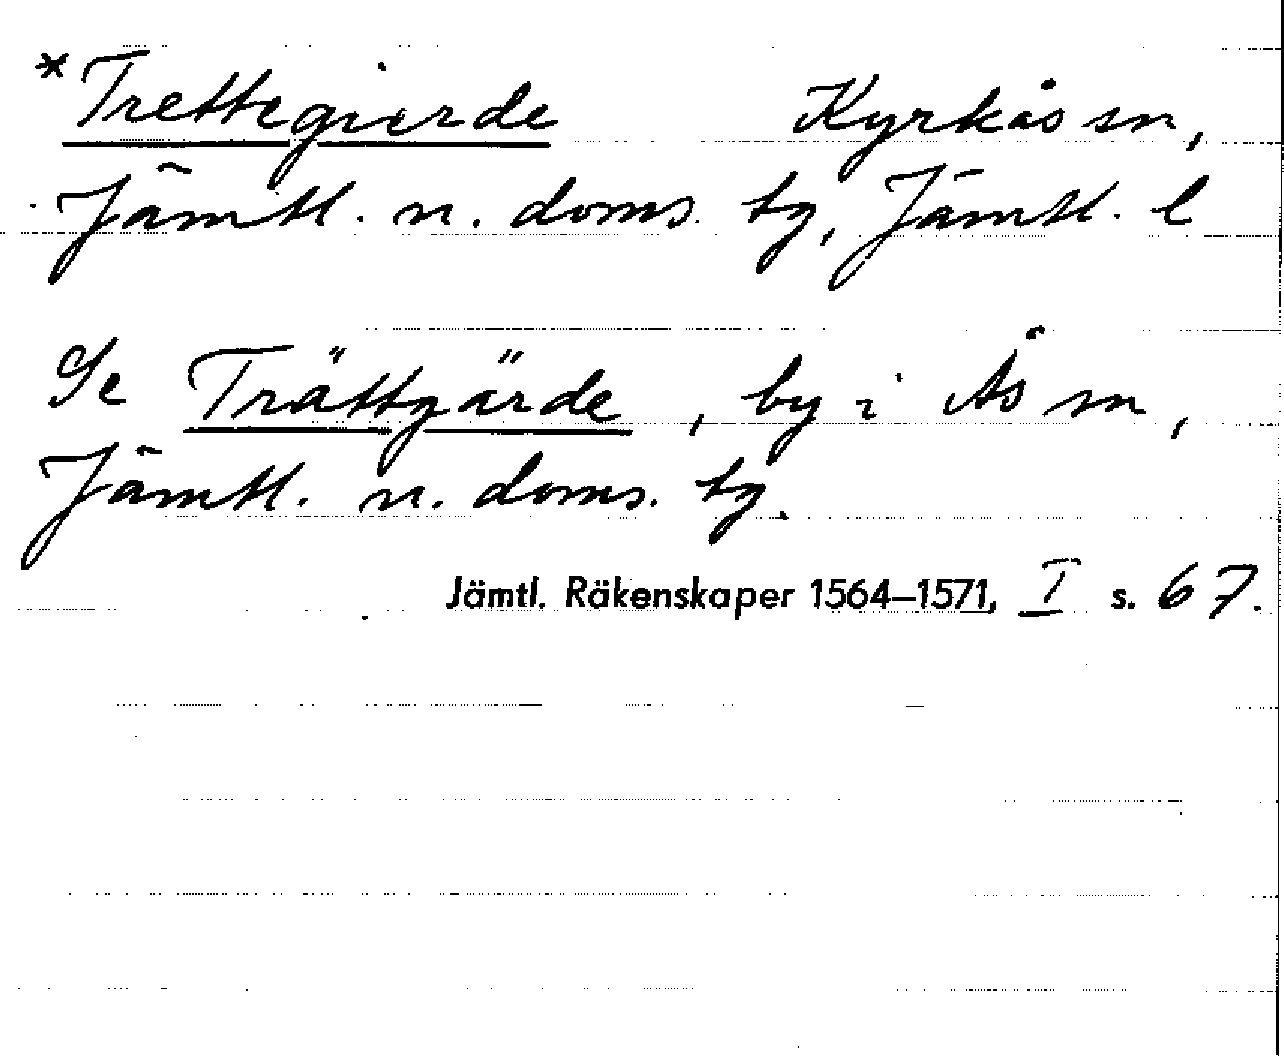 *Trettegierde Kyrkås sn,
Jämtl. n. doms. tg, Jämtl. l
Se Trättgärde, by i Ås sn,
Jämtl. n. doms. tg.
Jämtl. Räkenskaper 1564–1571, I s. 67.